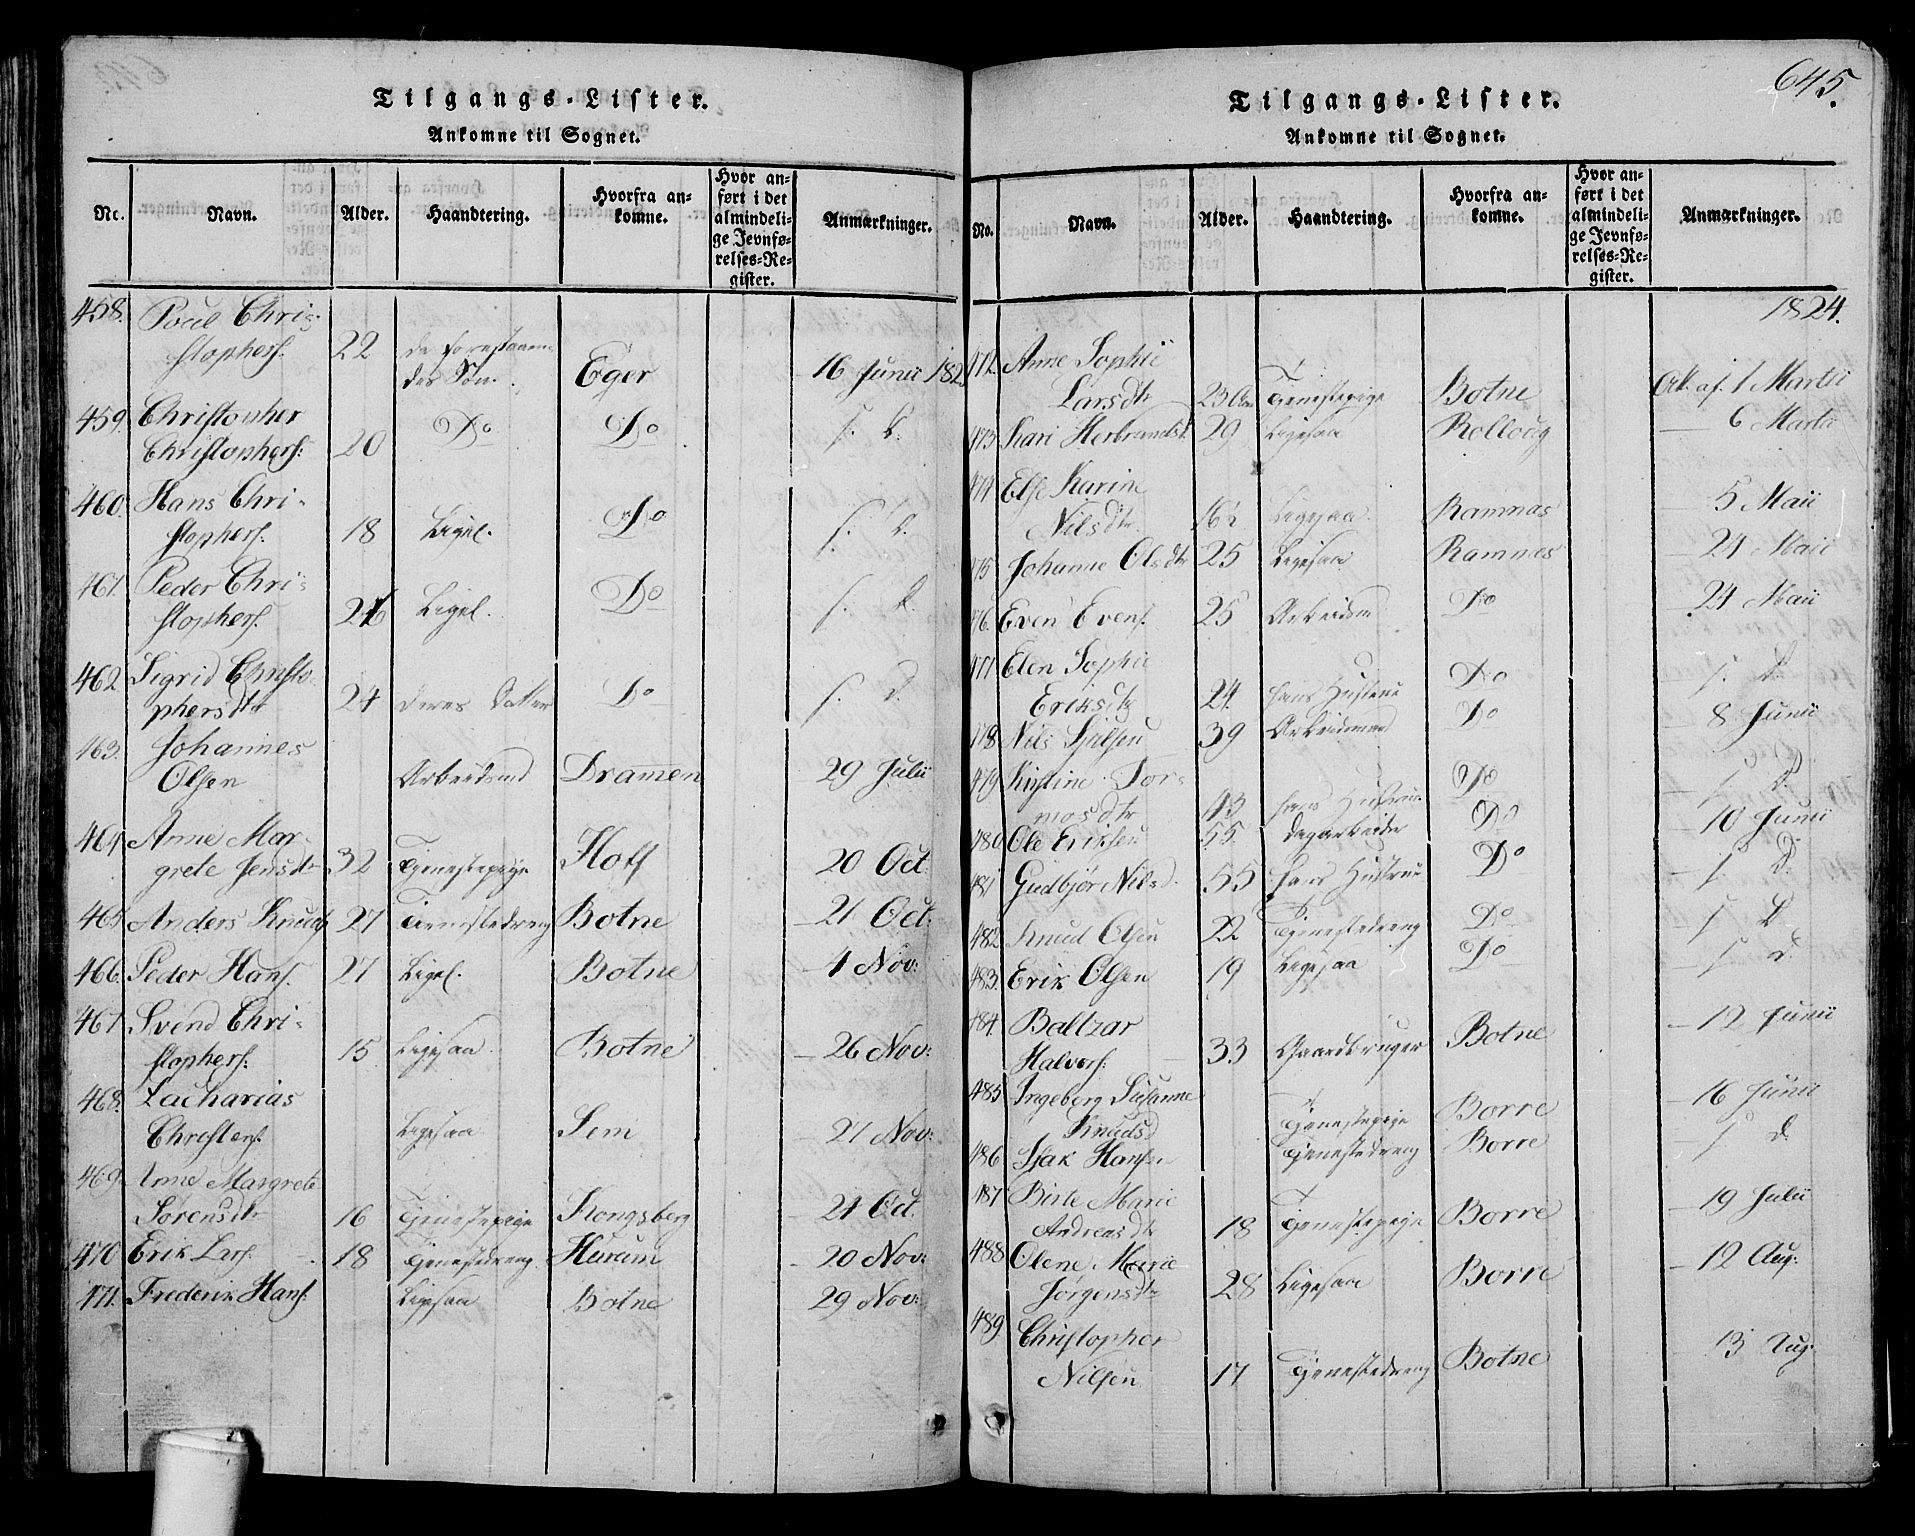 Tilgangs-Lister.
Ankomne til Sognet.
No. Navn. Alder. Haandtering. Hvorfra ankomne. Hvor anført i det almindelige Jevnførelses-Register. Anmarkninger.
458. Poul Chris-
stophers. 22 de forestaaen-
des Søn. Eger 16 Junii 182
459. Christopher
Christophers. 20 Do Do s. D.
460. Hans Chri-
stophers. 18 Ligel. Do s. D.
461. Peder Chri-
stophers. Ligel. Do s. D.
462 Sigrid Christo-
phersdtr 24 deres Datter Do s. D.
463. Johannes
Olsen Arbeidsmd Dramen 29 Julii
464 Anne Mar-
grete Jensdtr 32 Tjenestepige Hoff 20 Oct.
465 Anders Knuds. 27 Tjenestedreng Botne 21 Oct.
466. Peder Hans. 27 Ligel. Botne 4 Nov:
467 Svend Chri-
stophers. 15 Ligesaa. Botne 26 Nov:
468. Zacharias
Christens. Ligesaa Sem 27 Nov:
469. Anne Margrete
Sørensdtr 16 Tjenestepige Kongsberg 21 Oct.
470 Erik Lars. 18 Tjenestedreng Hurum 20 Nov:
471. Frederik Hans. Ligesaa Botne 29 Nov:
645.
Tilgangs-Lister.
Ankomne til Sognet.
No. Navn. Alder. Haandtering. Hvorfra ankomne. Hvor anført i det almindelige Jevnførelses-Register. Anmarkninger.
1824.
472. Anne Sophie
Larsdtr 23 Aar Tjenestepige Botne Att. af 1 Martii
473 Kari Herbrandsd. 29 Ligesaa Rolloug 6 Martii
474 Else Karine
Nilsdtr 16½ Ligesaa. Ramnæs 5 Maii
475 Johanne Olsdtr 25 Ligesaa Ramnes 24 Maii
476. Even Evens. 25 Arbeidsmd Do 24 Maii
477 Elen Sophie
Eriksdtr 24. hans Hustrue Do s. D.
478 Nils 39 Arbeidsmand Do 8 Junii
479 Kistine Tor-
mosdtr 43 hans Hustrue Do s. D.
480 Ole Eriksen 55. dagarbeider Do 10 Junii
481 Gudbjør Nilsd. 55 hans Hustrue Do s. D.
482 Knud Olsen 22 Tjenestedreng Do s. D.
483. Erik Olsen 19 Ligesaa Do s. D.
484. Baltzar
Halvors. 33 Gaardbruger Botne 12 Junii
485 Ingeborg Susanne
Knudsd Tjenestepige Borre 16 Junii
486 Isak Hansen Tjenestedreng Borre s. D.
487 Birte Marie
Andreasdtr 18 Tjenestepige Borre 19 Julii
488 Olene Marie
Jørgensdtr 28 Ligesaa Borre 12 Aug:
489 Christopher
Nilsen 17 Tjenestedreng Botne 13 Aug.